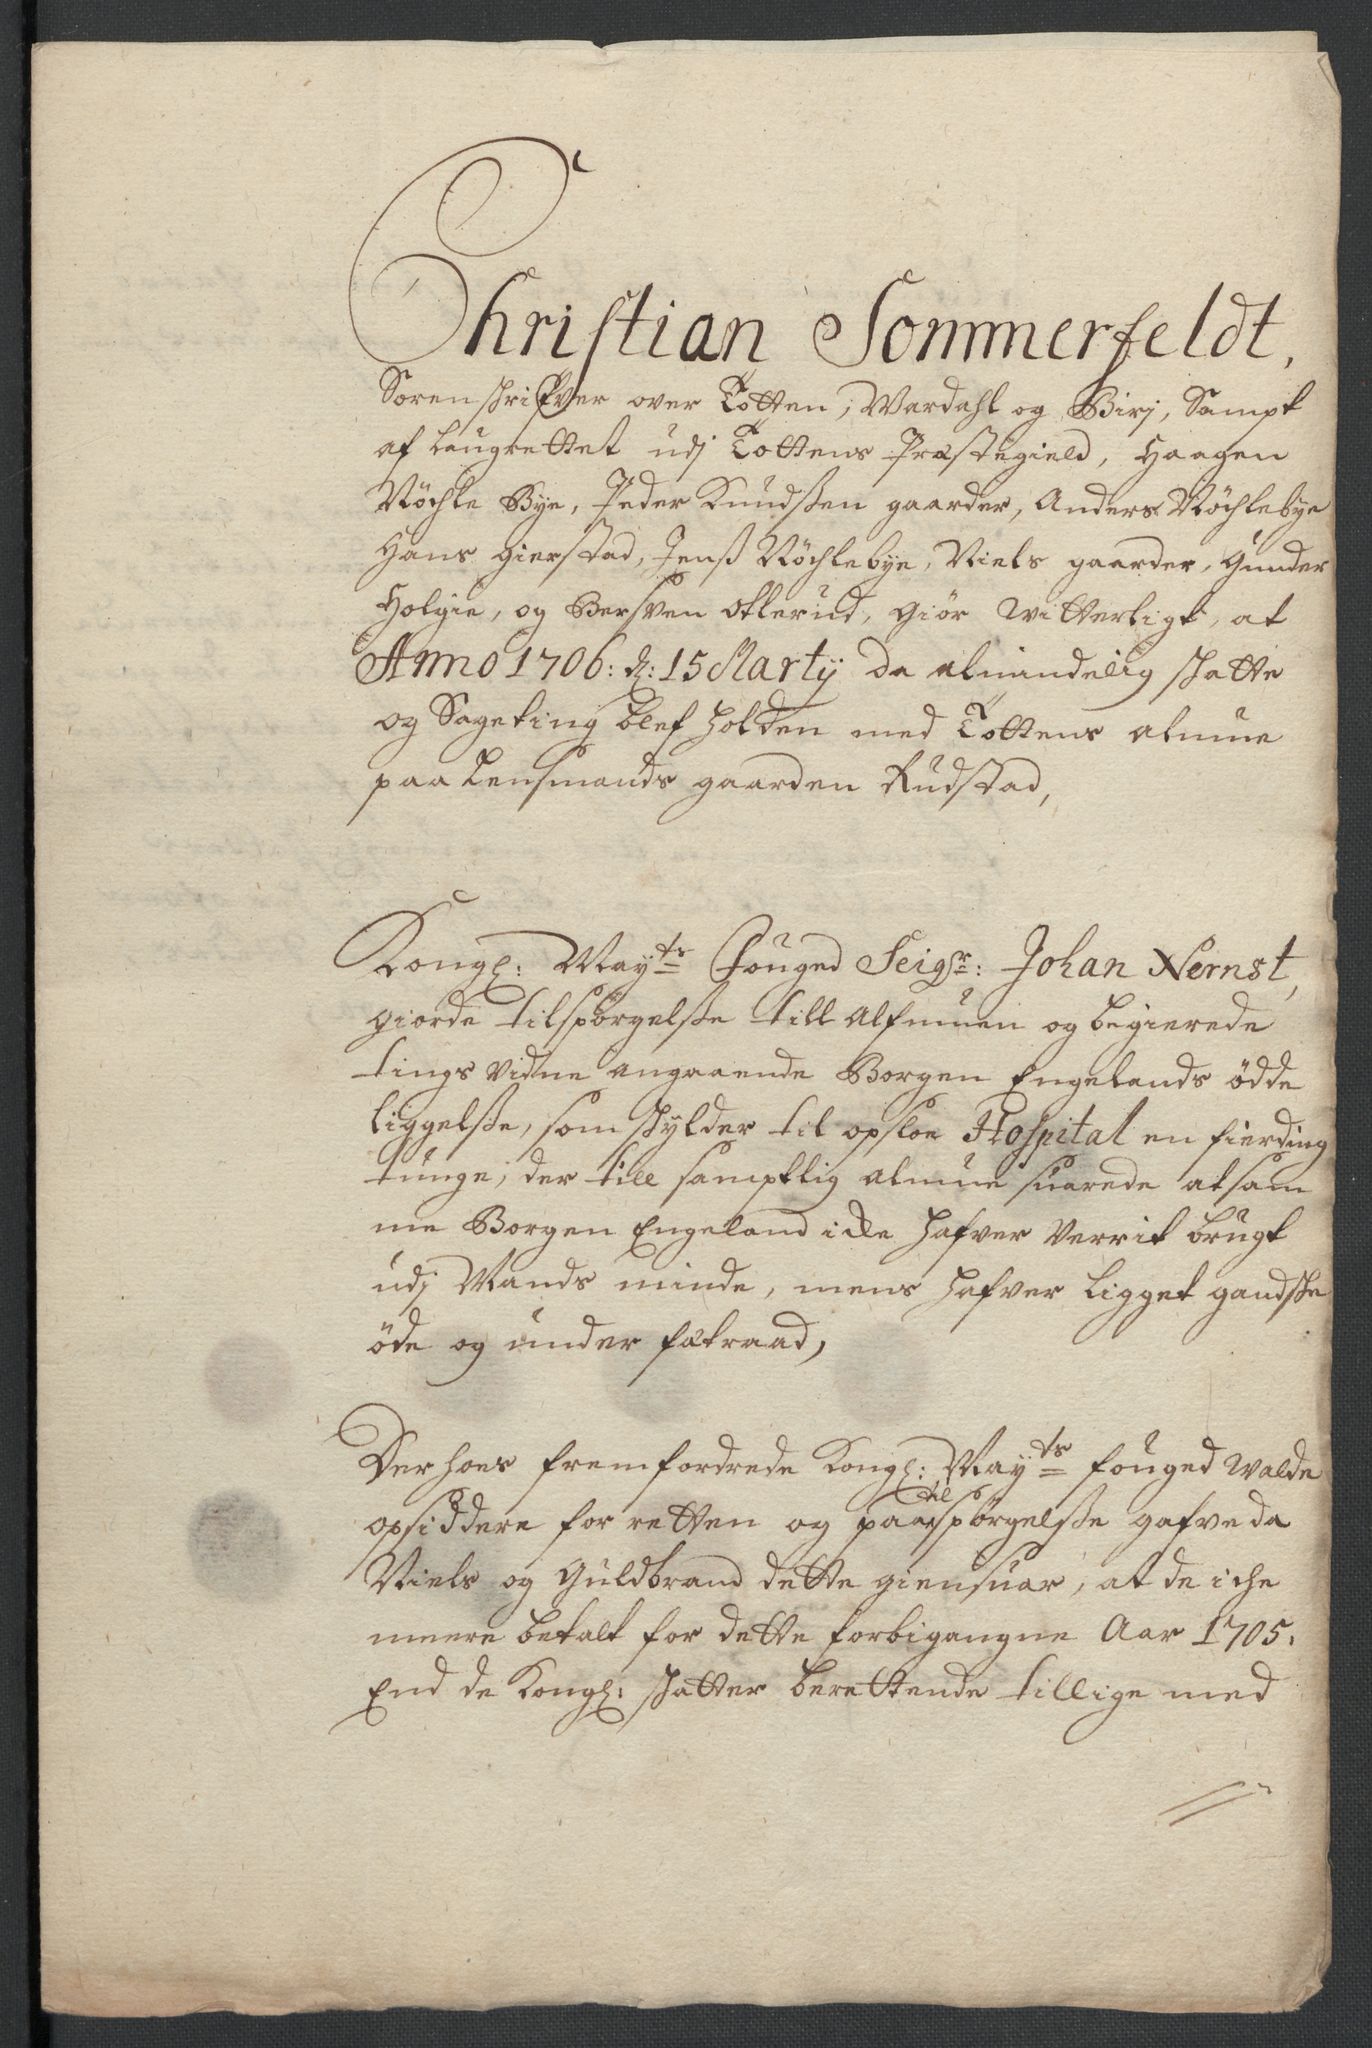 Christian Sommerfeldt,
Sorenschrifver over Totten, Wardahl og Birj, Sampt
af Laugrettet udj Tottens Præstegield, Haagen
Nöchle Bye, Peder Knudssen gaarder, Anders Nöchlebye
Hans Gierstad, Jenss Nöchlebye, Niels gaarder, Gunder
Holgie, og Bersven Ollerud, Giör witterligt, at
Anno 1706: d: 15 Martij da almindelig schatte
og Sageting blef holden med Tottens almue
paa Lensmands gaarden Rudstad,
Kongl: Mayts Fouged Seigr: Johan Nernst,
giorde tilspörgelsse till Allmuen og begierede
tings vidne angaaende Borgen Engelands ödde
liggelsse, som schylder til opsloe Hospital en fierding
tunge, der till samptlig almue suarede at sam
me Borgen Engeland icke hafver verrit brugt
udj Mands minde, mens hafver ligget gandsche
öde og under fætraad,
Derhoes fremfordrede Kongl: Mayts fouged Walde
opsiddere for retten og paa tilspörgelsse gafve da
Niels og Guldbrand dette giensuar, at de iche
meere betalt for dette forbigangne Aar 1705.
End de Kongl: schatter berettende tillige med